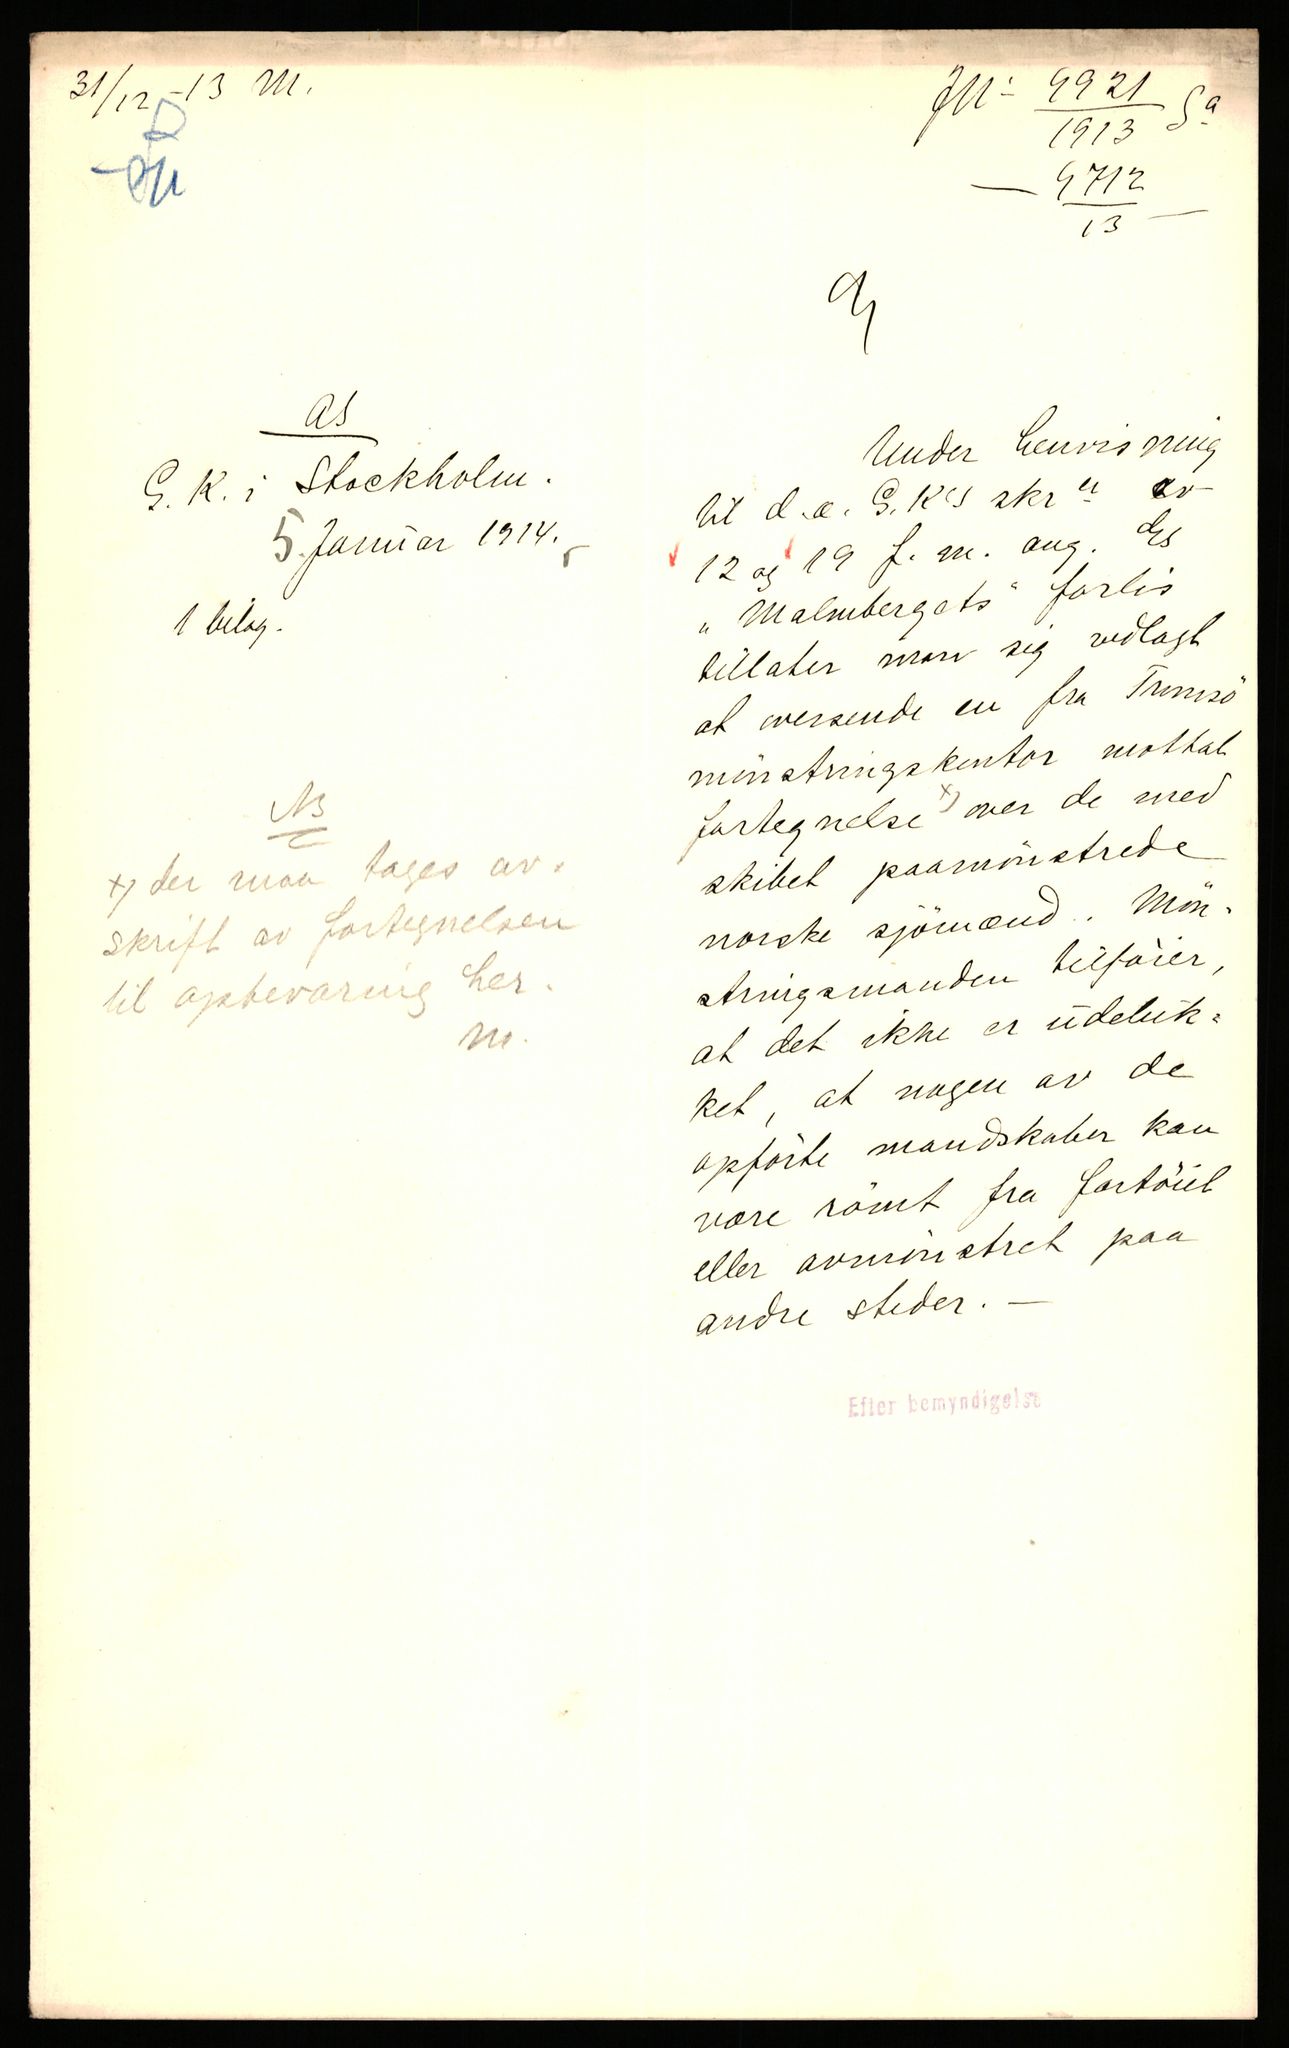 31/12 - 13 M.
JN: 9921
1913 Sa
— 9712 —
13
AS
G. K. i Stockholm.
5. Januar 1914.
1 bilag.
NB
x) der maa tages av-
skrift av fortegnelsen
til opbevaring her.
M.
Under henvisning
til d. æ. G. K's skr. av
12 og 19 f. m. ang. ds
"Malmbergets" forlis
tillater man sig vedlagt
at oversende en fra Tromsö
mönstringskontor mottat
fortegnelse x) over de med
skibet paamönstrede
norske sjömænd. Mön-
stringsmanden tilföier,
at det ikke er udeluk-
ket, at nogen av de
opförte mandskaber kan
være römt fra fartöiet
eller avmönstret paa
andre steder. —
Efter bemyndigelse